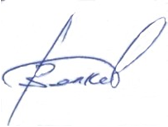 Волков